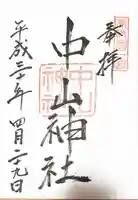 奉拝
中山神社
平成三十年四月二十九日